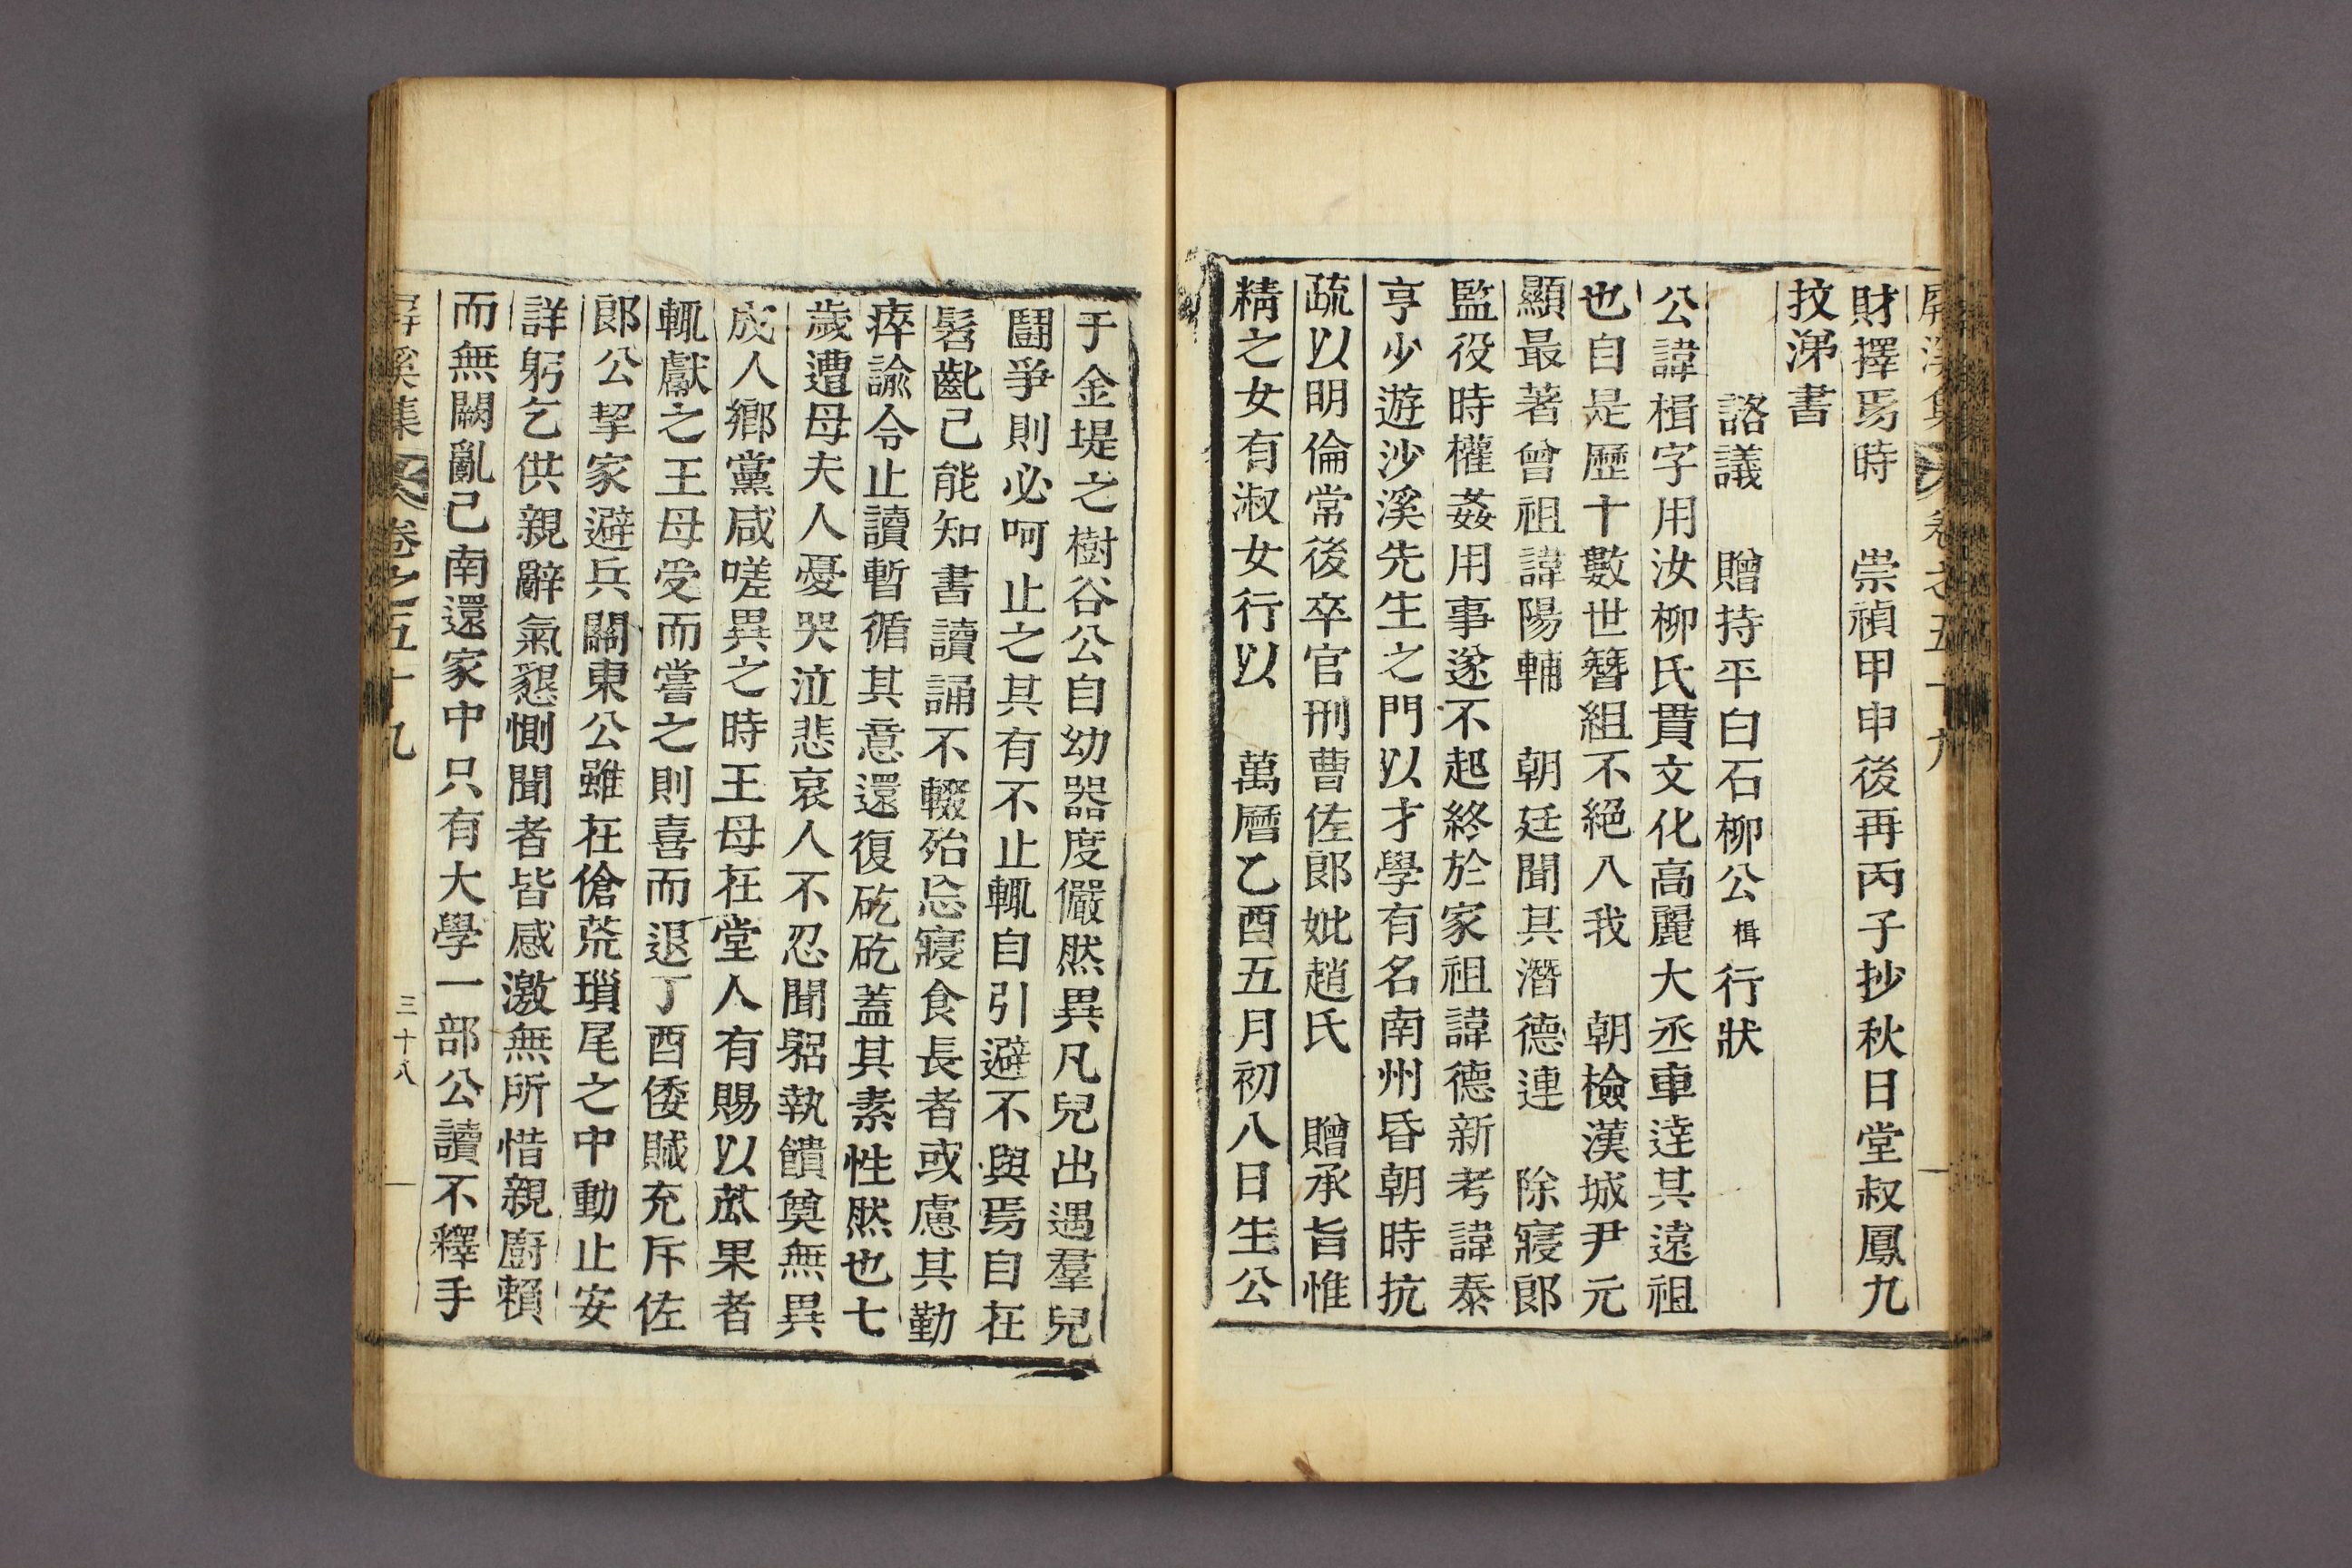 屛溪集 卷之五十九
財擇焉時 崇禎甲申後再丙子抄秋日堂叔鳳九
抆涕書
諮議 贈持平白石柳公楫行狀
公諱楫字用汝柳氏貫文化高麗大丞車達其遠祖
也自是歷十數世簪組不絕入我 朝檢漢城尹元
顯最著曾祖諱陽輔 朝廷聞其潛德連 除寢郞
監役時權姦用事遂不起終於家祖諱德新考諱泰
亨少遊沙溪先生之門以才學有名南州昏朝時抗
疏以明倫常後卒官刑曹佐郞妣趙氏 贈承旨惟
精之女有淑女行以 萬曆乙酉五月初八日生公
于金堤之樹谷公自幼器度儼然異凡兒出遇羣兒
鬪爭則必呵止之其有不止輒自引避不與焉自在
髫齔已能知書讀誦不輟殆忘寢食長者或慮其勤
瘁諭令止讀暫循其意還復矻矻蓋其素性然也七
歲遭母夫人憂哭泣悲哀人不忍聞躬執饋奠無異
成人鄕黨咸嗟異之時王母在堂人有賜以苽果者
輒獻之王母受而嘗之則喜而退丁酉倭賊充斥佐
郞公挈家避兵關東公雖在傖荒瑣尾之中動止安
詳躬乞供親辭氣懇惻聞者皆感激無所惜親廚賴
而無闕亂已南還家中只有大學一部公讀不釋手
屛溪集 卷之五十九 三十八